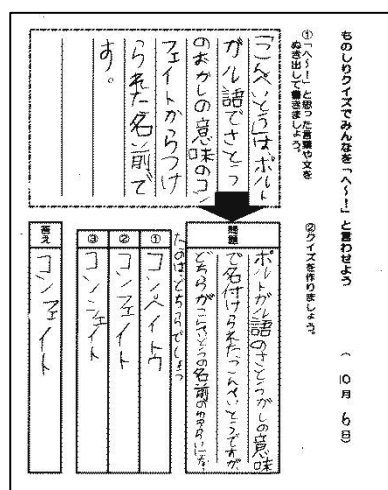 ものしりクイズでみんなを「へ~!」と言わせよう
( 10月 6日)
①「へ~!」と思った言葉や文を
ぬき出して書きましょう。
「こんぺいとう」は、ポルト
ガル語でさとう
のおかしの意味のコン
フェイトからつけ
られた名前で
す。
②クイズを作りましょう。
問題
ポルトガル語のさとうがしの意味
で名付けられたこんぺいとうですが、
どちらがこんぺいとうの名前のゆらいにな
たのはどちらでしょう
① コンペイトウ
② コンフェイト
③ コンンフェイト
答え
コンフェイト